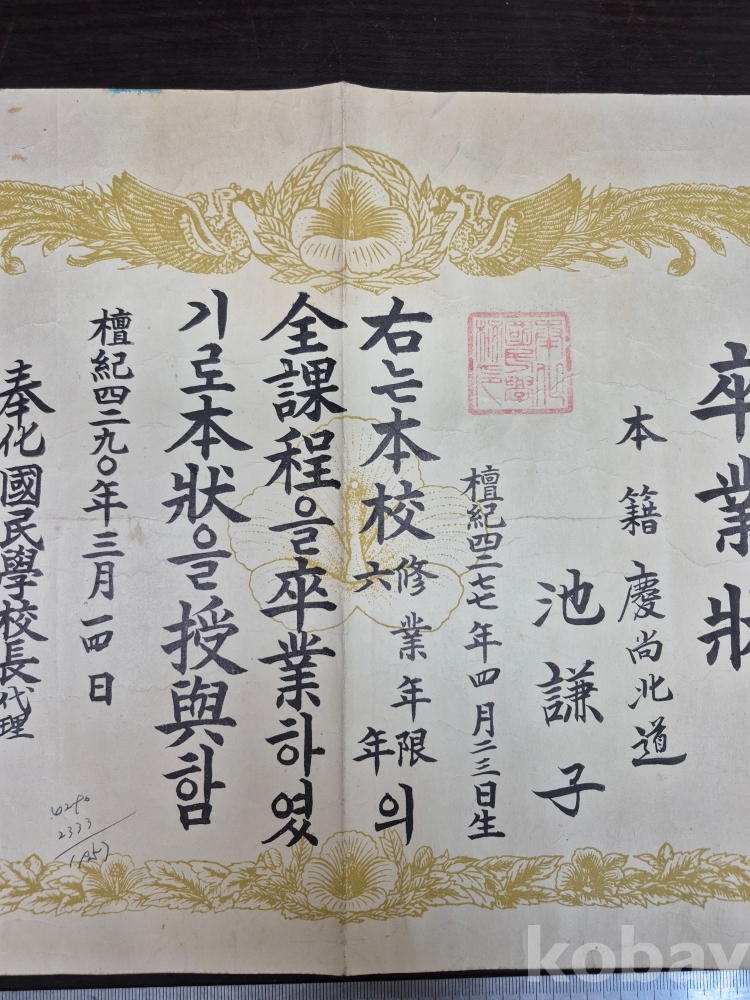 卒業狀
本籍 慶尚北道
池謙子
檀紀四二七七年四月二三日生
右는本校修業年限六年의
全課程을卒業하였
기로本狀을授與함
檀紀四二九〇年三月一四日
奉化國民學校長代理
4290
2333
1957
kobay